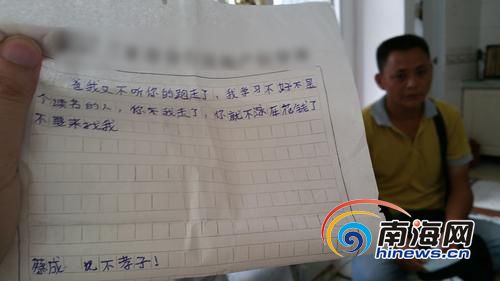 爸我又不听你的跑走了，我学习不好不是
个读书的人，你我走了，你就不在花钱了
不要来找我
蔡成 不孝子！
南海网
hinews.cn